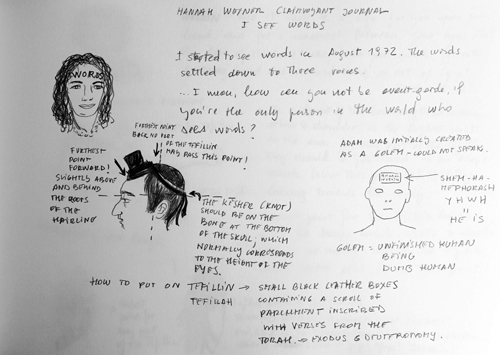 HANNAH WEINER CLAIRVOYANT JOURNAL
I SEE WORDS
I started to see words in August 1972. The words
settled down to three voices.
...I mean, how can you not be avant-garde, if
you're the only person in the world who
sees words?
WORDS
FURTHEST POINT
BACK. NO PART
OF THE TEFILLIN
MAY PASS THIS POINT!
FURTHEST
POINT
FORWARD!
SLIGHTLY ABOVE
AND BEHIND
THE ROOTS
OF THE
HAIRLINE
THE KESHER (KNOT)
SHOULD BE ON THE
BONE AT THE BOTTOM
OF THE SKULL, WHICH
NORMALLY CORRESPONDS
TO THE HEIGHT OF THE
EYES.
ADAM WAS INITIALLY CREATED
AS A GOLEM - COULD NOT SPEAK.
SHEM-HA-
MEPHORASH
YHWH
"
HE IS
GOLEM = UNFINISHED HUMAN
BEING
DUMB HUMAN
HOW TO PUT ON TEFILLIN → SMALL BLACK LEATHER BOXES
TEFILLAH
CONTAINING A SCROLL OF
PARCHMENT INSCRIBED
WITH VERSES FROM THE
TORAH → EXODUS & DEUTERONOMY.